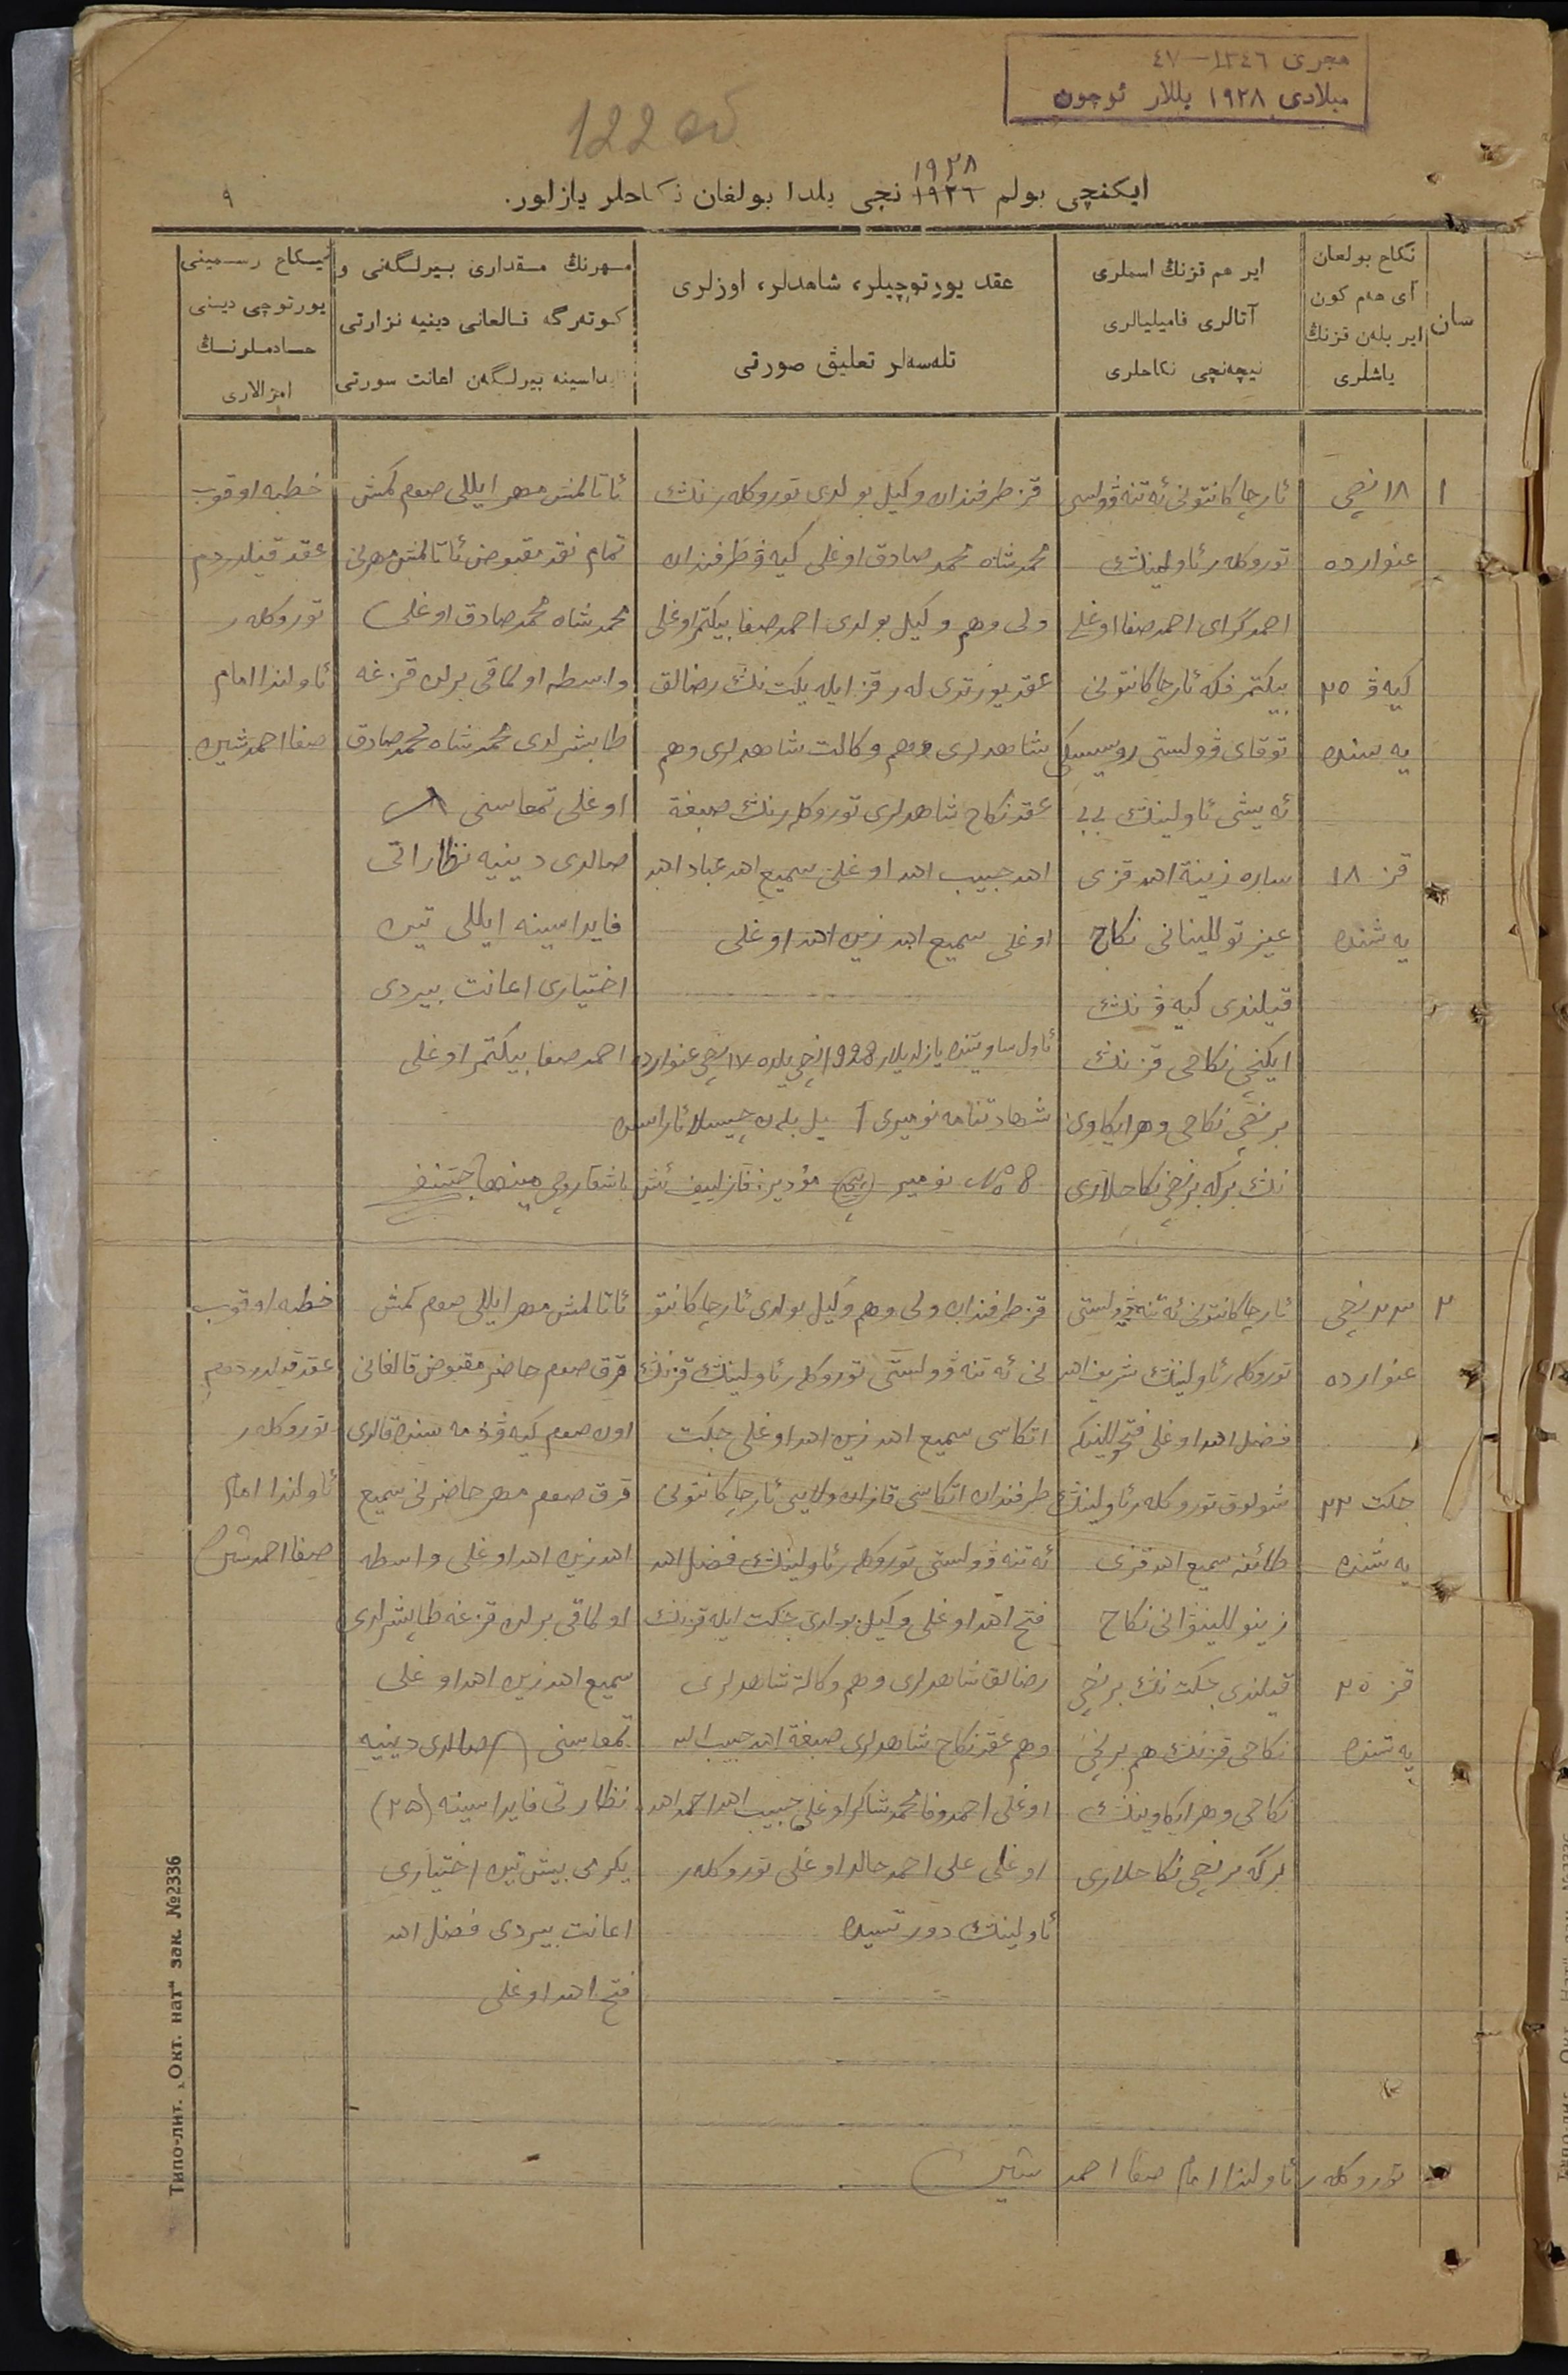 هجری ١٣٤٦—٤٧
میلادی ١٩٢٨ یللار ئوچون
122 об
١٩٢٨
ایکنچی بولم ١٩٢٦ نچی یلدا بولغان نکاحلر یازلور.
٩
سان
نکاح بولعان
آی هەم کون
ایر بلەن قزنڭ
یاشلری
ایر هم قزنڭ اسملری
آتالری فامیلیالری
نیچەنچی نکاحلری
عقد یورتوچیلر، شاهدلر، اوزلری
تلەسەلر تعلیق صورتی
مهرنڭ مقداری بیرلگەنی و
کوتەرگە قالعانی دینیه نزارتی
فایداسینە بیرلگەن اعانت سورتی
نیکاح رسمینی
یورتوچی دینی
خادملرنڭ
امزالاری
١
١٨ نچی
عنوارده
کیەۋ ٢٥
یەشندە
قز ١٨
یەشندە
ئارچا کانتونی ئەتنە ۋولستی
توروکلەر ئاولینڭ
احمدگرای احمدصفا اوغلی
بیکتمرفکە ئارچا کانتونی
توقای ۋولستی روسیسکی
ئەیشی ئاولینڭ بی بی
سارە زینة الله قزی
عیزتوللینانی نکاح
قیلندی کیەۋ نڭ
ایکنچی نکاحی قزنڭ
برنچی نکاحی وهر ایکاوی
نڭ برگە برنچی نکاحلاری
قز طرفندان وکیل بولدی توروکلەرنڭ
محمدشاە محمدصادق اوغلی کیەۋ طرفندان
ولی وهم وکیل بولدی احمدصفا بیکتمر اوغلی
عقد یورتدی لەر قز ایلە یکت نڭ رضالق
شاهدلری وهم وکالت شاهدلری وهم
عقد نکاح شاهدلری توروکلەرنڭ صبغة
الله حبیب الله اوغلی سمیع الله عباد الله
اوغلی سمیع الله زین الله اوغلی
ئاول ساویتندە یازلدیلار 1928 نچی یلدە ١٧ نچی عنواردە
شهادتنامە نومیری 1
№ 8 نومیر
ئاتالمش مهر ایللی صوم کمش
تمام نقد مقبوض ئاتالمش مهرنی
محمدشاە محمدصادق اوغلی
واسطە اولماقی برلان قزغە
طابشرلدی محمدشاە محمدصادق
اوغلی تمعاسنی
صالدی دینیه نظاراتی
فایداسینە ایللی تین
اختیاری اعانت بیردی
احمدصفا بیکتمر اوغلی
خطبه اوقوب
عقد قیلدردم
توروکلەر
ئاولندا امام
صفا احمدشین
٢
٢٣ نچی
عنوارده
جکت ٢٢
یەشندە
قز ٢٥
یەشندە
ئارچا کانتونی ئەتنە ۋولستی
توروکلەر ئاولینڭ شریف الله
فضل الله اوغلی فتح اللینکە
شولوق توروکلەر ئاولینڭ
طائفە سمیع الله قزی
زینو للینۋانی نکاح
قیلندی جکت نڭ برنچی
نکاحی قزنڭ هم برنچی
نکاحی وهر ایکاوینڭ
برگە برنچی نکاحلاری
قز طرفندان ولی وهم وکیل بولدی ئارچا کانتو
نی ئەتنە ۋولستی توروکلەر ئاولینڭ قزنڭ
اتکاسی سمیع الله زین الله اوغلی جکت
طرفندان اتکاسی قازان ولایتی ئارچا کانتونی
ئەتنە ۋولستی توروکلەر ئاولینڭ فضل الله
فتح الله اوغلی وکیل بولدی جکت ایلە قزنڭ
رضالق شاهدلری وهم وکالة شاهدلری
وهم عقد نکاح شاهدلری صبغة الله حبیب الله
اوغلی احمدوفا محمدشاکر اوغلی حبیب الله احمدالله
اوغلی علی احمدخالد اوغلی توروکلەر
ئاولینڭ دورتسیدە
ئاتالمش مهر ایللی صوم کمش
قرق صوم حاضر مقبوض قالغانی
اون صوم کیەۋ ذمەسندە قالدی
قرق صوم مهر حاضرنی سمیع
الله زین الله اوغلی واسطە
اولماقی برلان قزغە طابشرلدی
سمیع الله زین الله اوغلی
تمعاسنی صالدی دینیه
نظارتی فایداسینە (٢٥)
یکرمی بیش تین اختیاری
اعانت بیردی فضل الله
فتح الله اوغلی
خطبه اوقوب
عقد قیلدردم
توروکلەر
ئاولندا امام
صفا احمدشین
توروکلەر ئاولندا امام صفا احمدشین
Типо-лит. „Окт. нат“ зак. №2336